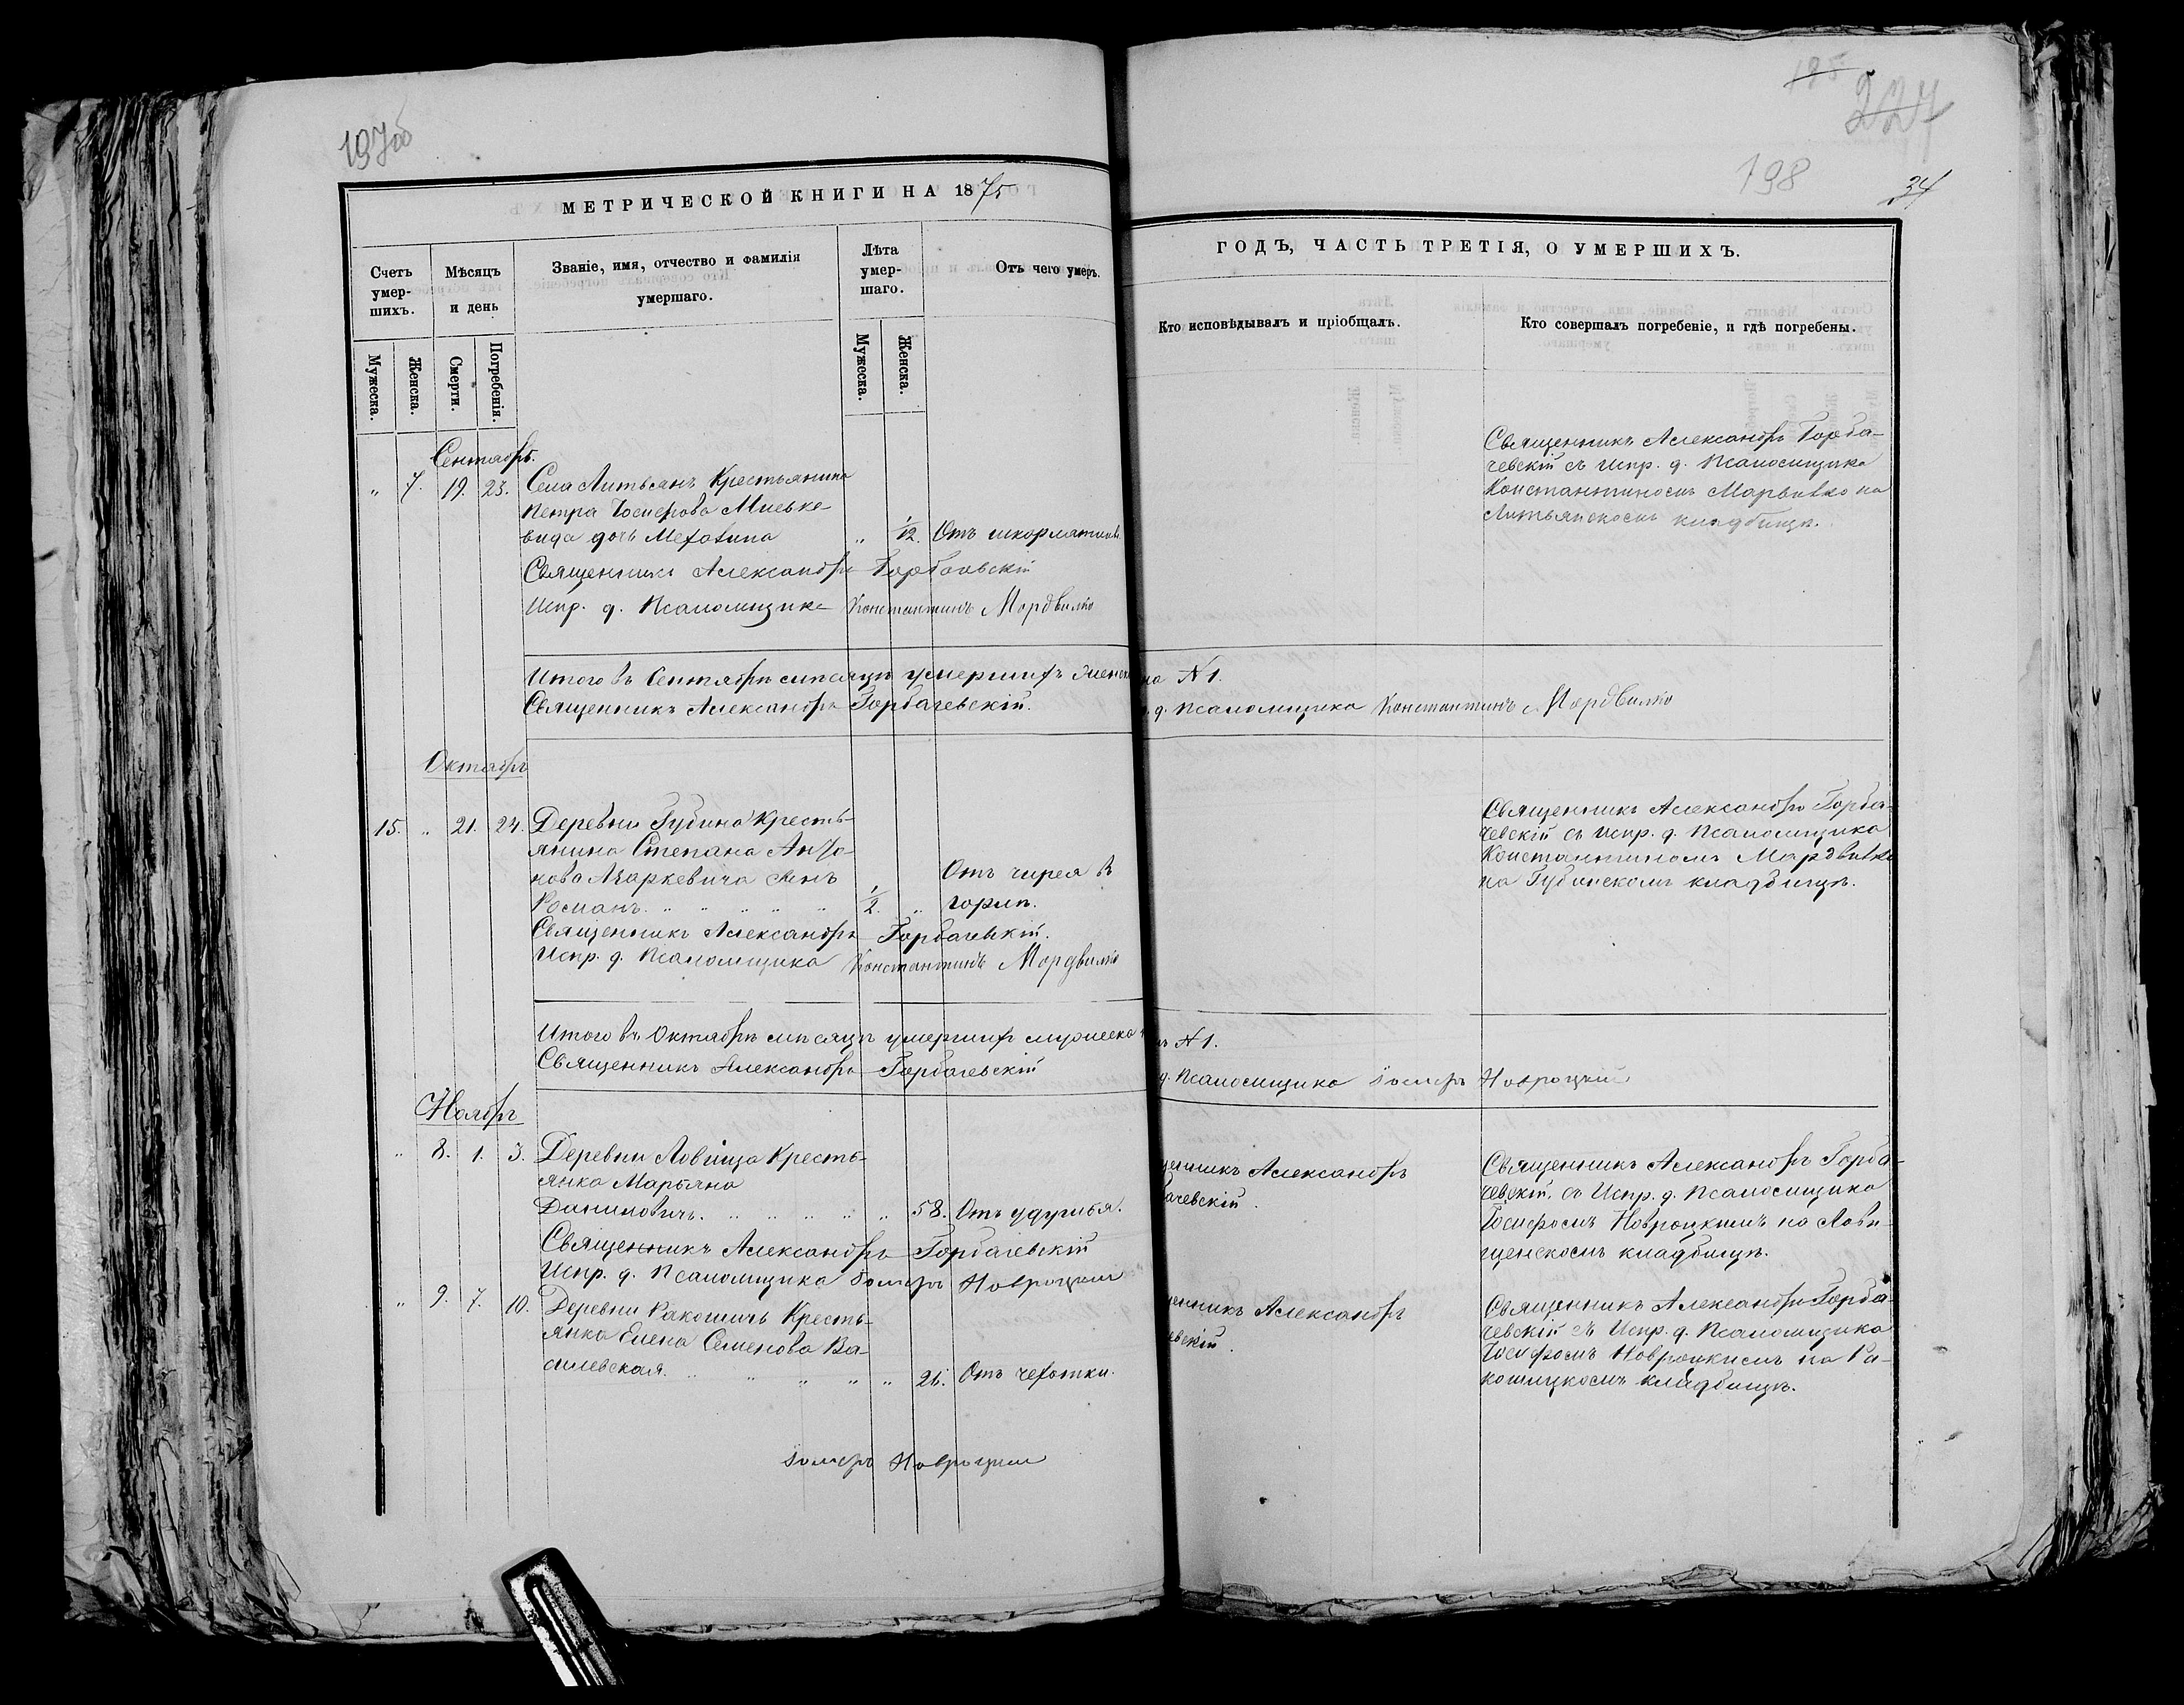 197об
МЕТРИЧЕСКОЙ КНИГИ НА 1875
Счетъ умер-шихъ.
Мѣсяцъ и день
Званіе, имя, отчество и фамилія умершаго.
Лѣта умер-шаго.
Отъ чего умеръ.
Мужеска.
Женска.
Смерти.
Погребенія.
Мужеска.
Женска.
Сентябрь.
" 7. 19. 23. Села Литьсанъ Крестьянина
Петра Іосифова
вида дочь " 1/12. Отъ
Священникъ Александръ Горбачевскій
Испр. д. Псаломщика Константинъ Мордвилко
Итого въ Сентябрѣ мѣсяцѣ умершихъ женска
Священникъ Александръ Горбачевскій.
Октябрь
15. " 21. 24. Деревни Губина Кресть-
янина Степана
кова Азаркевича сынъ Отъ чирея въ
Романъ. " " " " " 1/2. " горлѣ.
Священникъ Александръ Горбачевскій.
Испр. д. Псаломщика Константинъ Мордвилко
Итого въ Октябрѣ мѣсяцѣ умершихъ мужеска
Священникъ Александръ Горбачевскій
Ноябрь
" 8. 1. 3. Деревни Ловища Кресть-
янка Марьяна
Даниловичъ. " " " " " 58. Отъ удушья.
Священникъ Александръ Горбачевскій
Испр. д. Псаломщика Іосифъ Новроцкій
" 9. 7. 10. Деревни Ракошичь Кресть-
янка Елена Семенова Ва-
силевская. " " " " " 26. Отъ чехотки.
Іосифъ Новроцкій
195
227
198
34
ГОДЪ, ЧАСТЬ ТРЕТІЯ, О УМЕРШИХЪ.
Кто исповѣдывалъ и пріобщалъ.
Кто совершалъ погребеніе, и гдѣ погребены.
Священникъ Александръ Горба-
чевскій съ Испр. д. Псаломщика
Константиномъ на
кладбищѣ.
на №1.
д. Псаломщика Константинъ Мордвилко
Священникъ Александръ Горба-
чевскій съ Испр. д. Псаломщика
Константиномъ Мордвилко
на Губинскомъ кладбищѣ.
№1.
д. Псаломщика Іосифъ Новроцкій
щенникъ Александръ
бачевскій.
Священникъ Александръ Горба-
чевскій, съ Испр. д. Псаломщика
Іосифомъ Новроцкимъ на Лови-
щенскомъ кладбищѣ.
щенникъ Александръ
чевскій.
Священникъ Александръ Горба-
чевскій съ Испр. д. Псаломщика
Іосифомъ Новроцкимъ на Ра-
кошицкомъ кладбищѣ.